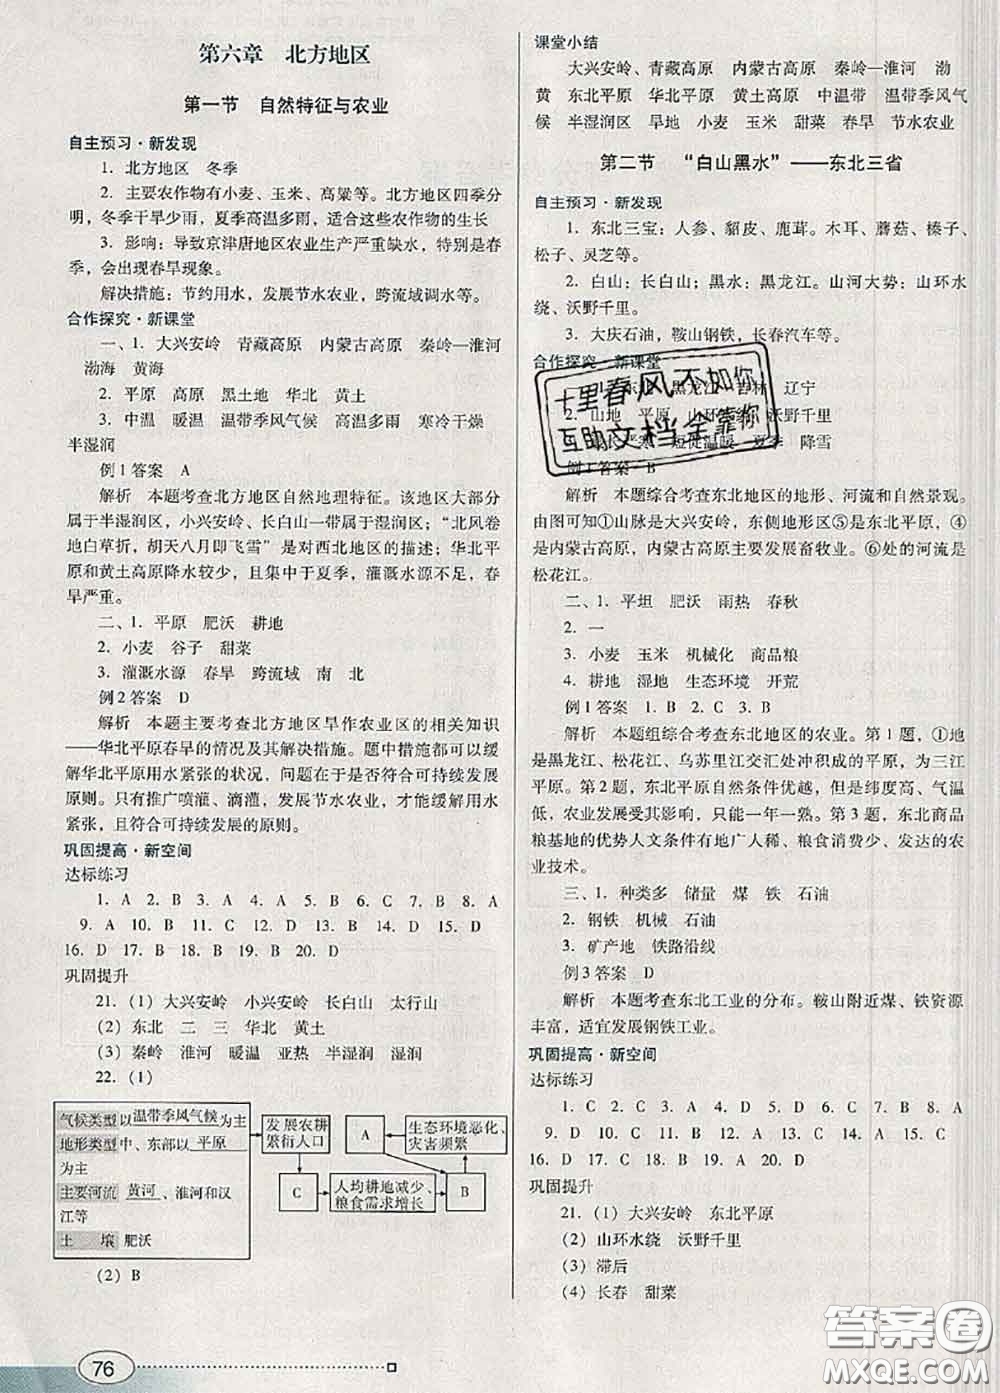 第六章 北方地区
第一节 自然特征与农业
自主预习·新发现
1. 北方地区 冬季
2. 主要农作物有小麦、玉米、高粱等。北方地区四季分
明，冬季干旱少雨，夏季高温多雨，适合这些农作物的生长
3. 影响：导致京津唐地区农业生产严重缺水，特别是春
季，会出现春旱现象。
解决措施：节约用水，发展节水农业，跨流域调水等。
合作探究·新课堂
一、1. 大兴安岭 青藏高原 内蒙古高原 秦岭—淮河
渤海 黄海
2. 平原 高原 黑土地 华北 黄土
3. 中温 暖温 温带季风气候 高温多雨 寒冷干燥
半湿润
例1答案 A
解析 本题考查北方地区自然地理特征。该地区大部
分属于半湿润区，小兴安岭、长白山一带属于湿润区；“北风卷
地白草折，胡天八月即飞雪”是对西北地区的描述；华北平
原和黄土高原降水较少，且集中于夏季，灌溉水源不足，春
旱严重。
二、1. 平原 肥沃 耕地
2. 小麦 谷子 甜菜
3. 灌溉水源 春旱 跨流域 南 北
例2答案 D
解析 本题主要考查北方地区旱作农业区的相关知识
——华北平原春旱的情况及其解决措施。题中措施都可以缓
解华北平原用水紧张的状况，问题在于是否符合可持续发展
原则。只有推广喷灌、滴灌，发展节水农业，才能缓解用水
紧张，且符合可持续发展的原则。
巩固提高·新空间
达标练习
1. A 2. B 3. A 4. A 5. B 6. C 7. B 8. A
9. A 10. B 11. C 12. D 13. B 14. D 15. D
16. D 17. B 18. B 19. B 20. D
巩固提升
21. (1) 大兴安岭 小兴安岭 长白山 太行山
(2) 东北 二 三 华北 黄土
(3) 秦岭 淮河 暖温 亚热 半湿润 湿润
22. (1)
气候类型 以温带季风气候为主
地形类型 中、东部以平原
为主
主要河流 黄河、淮河和汉
江等
土 壤 肥沃
发展农耕
繁衍人口
A
生态环境恶化、
灾害频繁
C
人均耕地减少、
粮食需求增长
B
(2) B
76
课堂小结
大兴安岭、青藏高原 内蒙古高原 秦岭—淮河 渤
黄 东北平原 华北平原 黄土高原 中温带 温带季风气
候 半湿润区 旱地 小麦 玉米 甜菜 春旱 节水农业
第二节 “白山黑水”——东北三省
自主预习·新发现
1. 东北三宝：人参、貂皮、鹿茸。木耳、蘑菇、榛子、
松子、灵芝等。
2. 白山：长白山；黑水：黑龙江。山河大势：山环水
绕、沃野千里。
3. 大庆石油，鞍山钢铁，长春汽车等。
合作探究·新课堂
黑龙江 吉林 辽宁
2. 山地 平原 山环水绕 沃野千里
夏季 降雪
例1答案 B
十里春风不如你
互助文档全靠你
解析 本题综合考查东北地区的地形、河流和自然景观。
由图可知①山脉是大兴安岭，东侧地形区⑤是东北平原，④
是内蒙古高原，内蒙古高原主要发展畜牧业。⑥处的河流是
松花江。
二、1. 平坦 肥沃 雨热 春秋
2. 一
3. 小麦 玉米 机械化 商品粮
4. 耕地 湿地 生态环境 开荒
例1答案 1. B 2. C 3. B
解析 本题组综合考查东北地区的农业。第1题，①地
是黑龙江、松花江、乌苏里江交汇处冲积成的平原，为三江
平原。第2题，东北平原自然条件优越，但是纬度高、气温
低，农业发展受其影响，只能一年一熟。第3题，东北商品
粮基地的优势人文条件有地广人稀、粮食消费少、发达的农
业技术。
三、1. 种类多 储量 煤 铁 石油
2. 钢铁 机械 石油
3. 矿产地 铁路沿线
例3答案 D
解析 本题考查东北工业的分布。鞍山附近煤、铁资源
丰富，适宜发展钢铁工业。
巩固提高·新空间
达标练习
1. C 2. C 3. A 4. B 5. C 6. C 7. B 8. A
9. D 10. C 11. B 12. A 13. C 14. A 15. C
16. D 17. C 18. D 19. A 20. D
巩固提升
21. (1) 大兴安岭 东北平原
(2) 山环水绕 沃野千里
(3) 滞后
(4) 长春 甜菜
答案圈
MXQE.COM